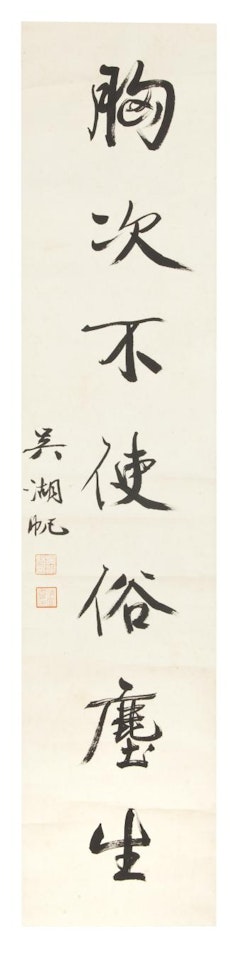 胸次不使俗塵生
吳湖帆